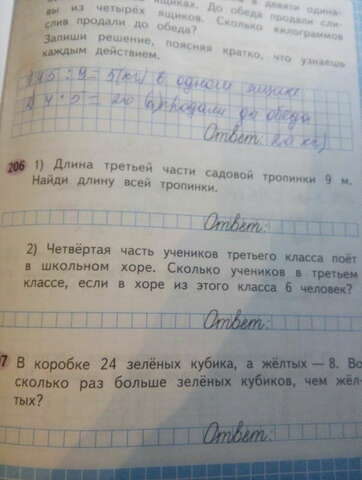 в девяти одина-
вы из четырёх ящиков. До обеда продали сли-
слив продали до обеда? Сколько килограммов
Запиши решение, поясняя кратко, что узнаешь
каждым действием.
45 : 9 = 5 (кг) в одном ящике
4 · 5 = 20 продали до обеда
Ответ: 20 кг
206 1) Длина третьей части садовой тропинки 9 м.
Найди длину всей тропинки.
Ответ:
2) Четвёртая часть учеников третьего класса поёт
в школьном хоре. Сколько учеников в третьем
классе, если в хоре из этого класса 6 человек?
Ответ:
7 В коробке 24 зелёных кубика, а жёлтых — 8. Во
сколько раз больше зелёных кубиков, чем жёл-
тых?
Ответ: